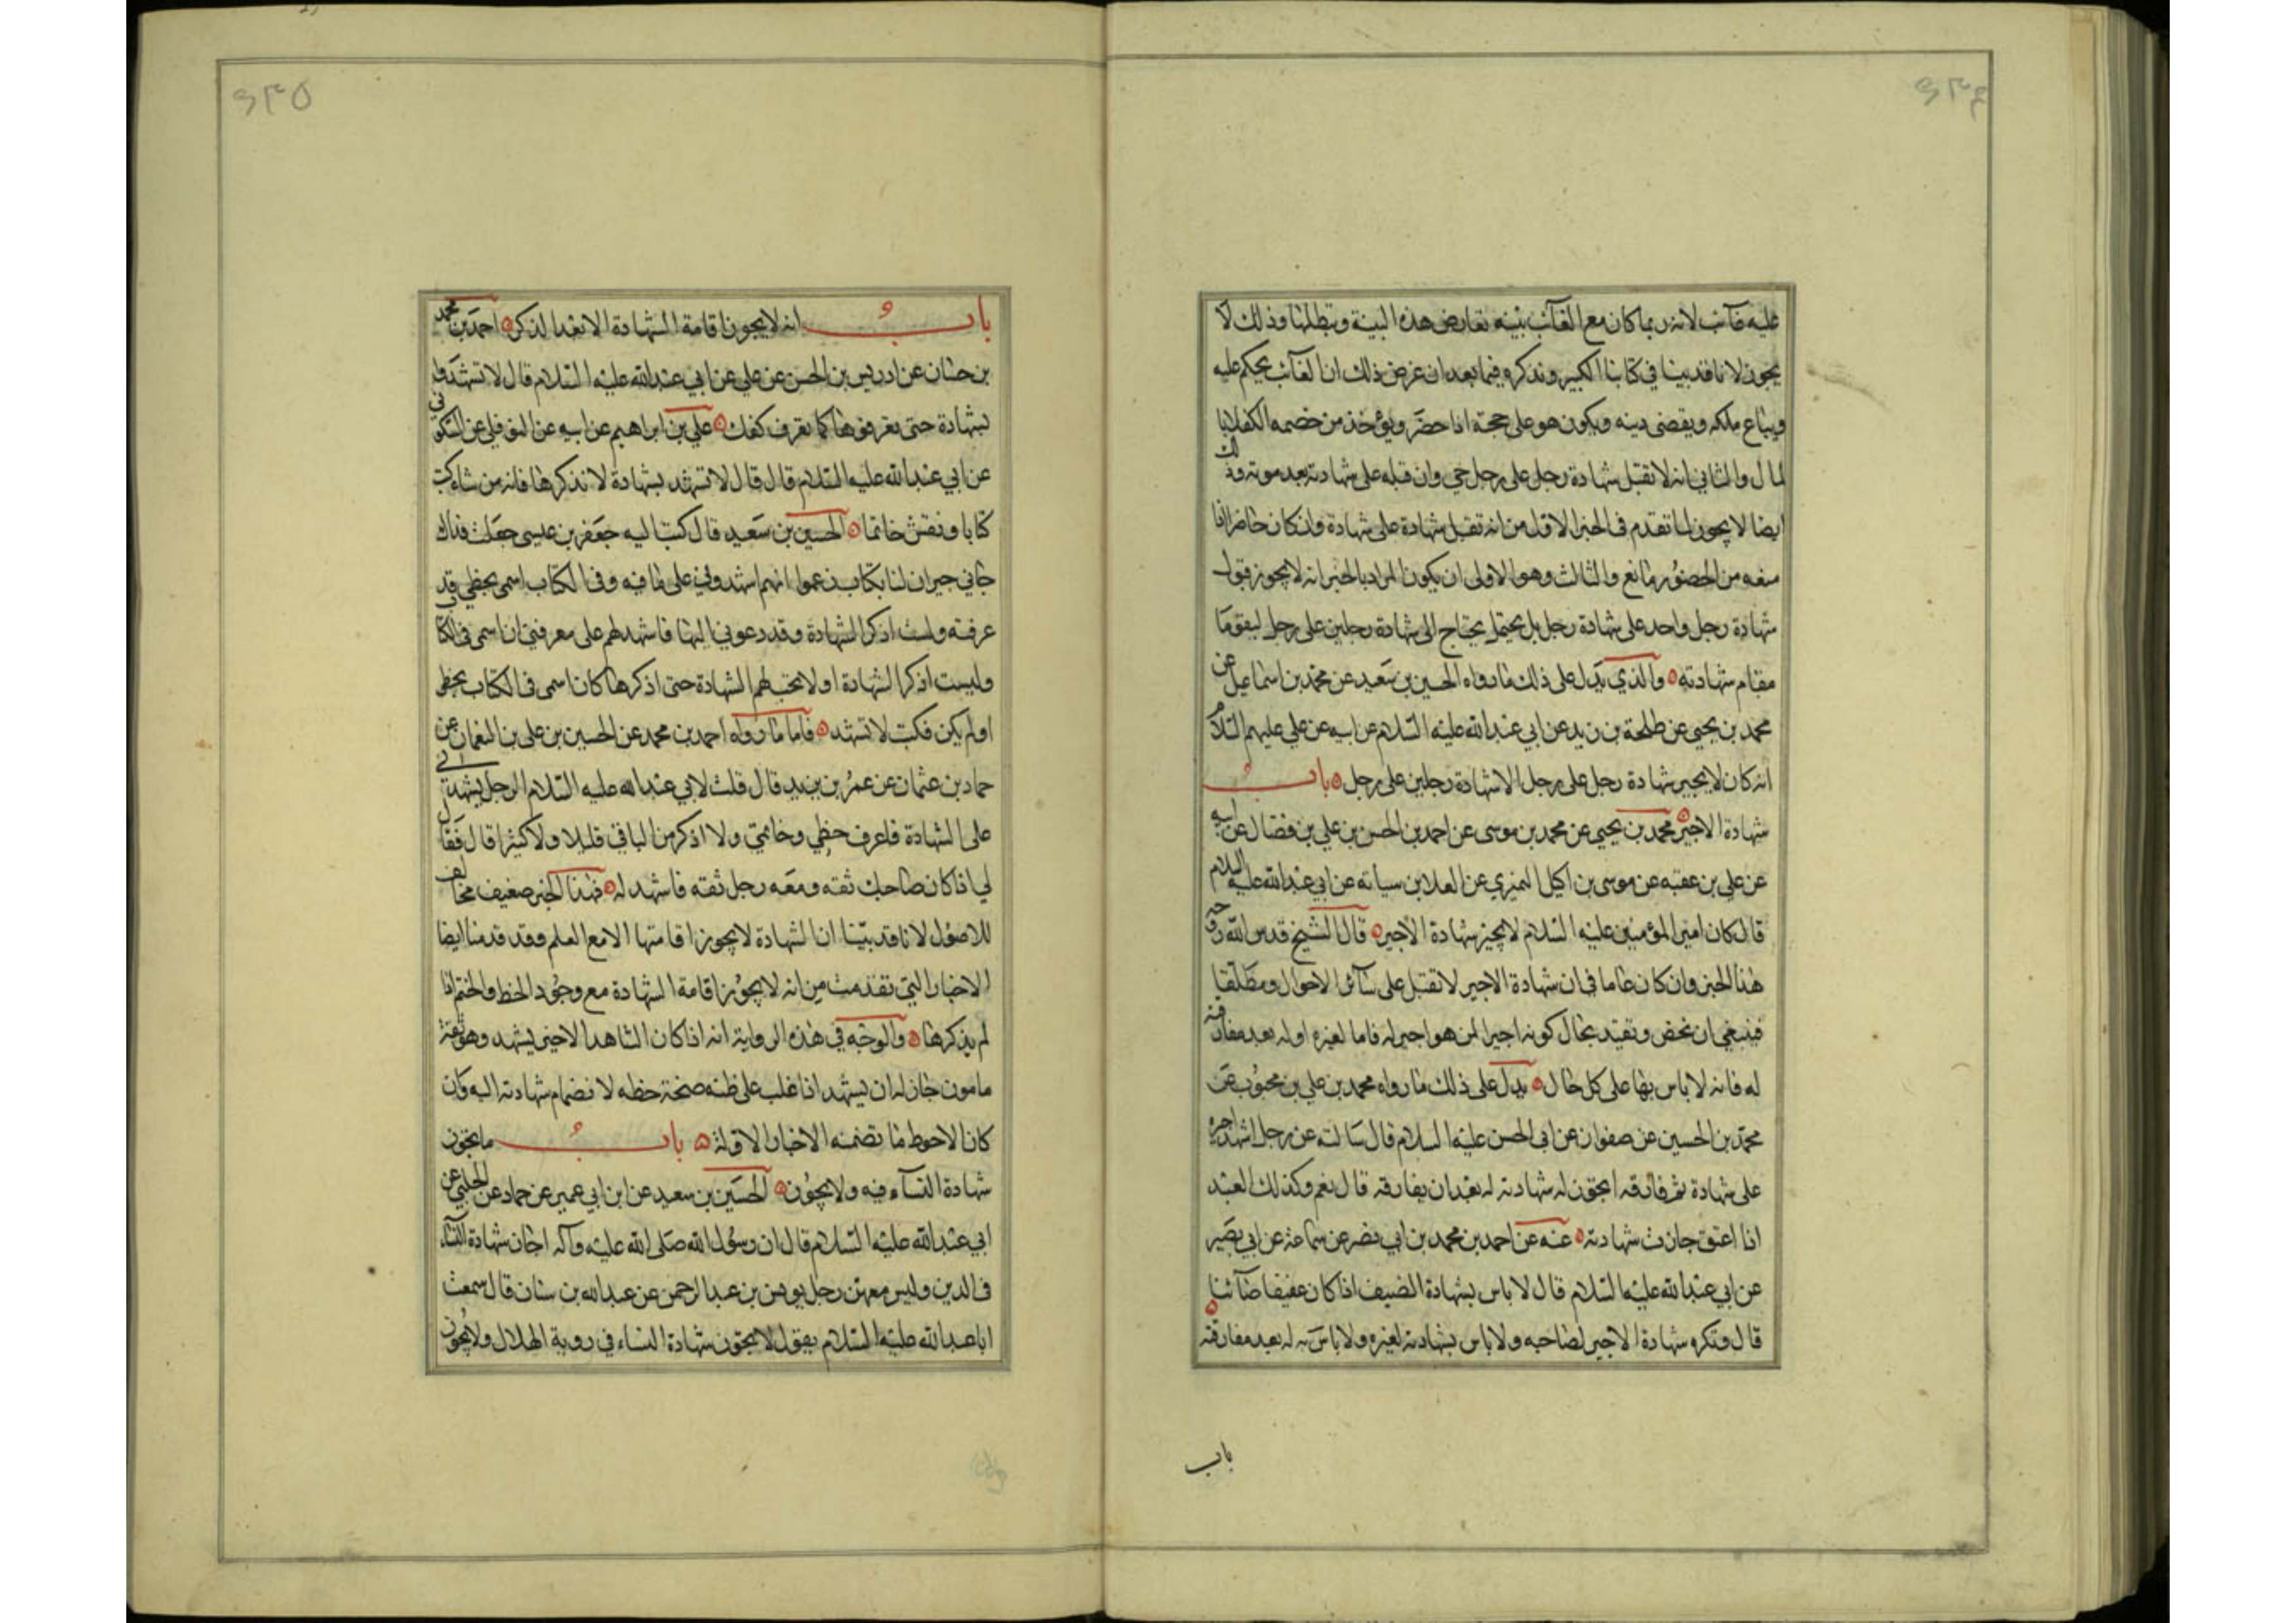 عليه غائب لانه ربما كان مع الغائب بينه تعارض هذه البينة وتبطلها وذلك لا
يجوز لانا قد بينا في كتابنا الكبير ونذكره فيما بعد ان غرض ذلك ان الغائب يحكم عليه
ويباع ملكه ويقضى دينه ويكون هو على حجة اذا حضر ويؤخذ من خصمه الكفلا با
لمال والثاني انه لا تقبل شهادة رجل على رجل حي وان قبله على شهادته بعد موته وذلك
ايضا لا يجوز لما تقدم في الخبر الاول من انه تقبل شهادة على شهادة وان كان حاضرا اذا
منعه من الحضور مانع والثالث وهو الاولى ان يكون المراد بالخبر انه لا يجوز قبول
شهادة رجل واحد على شهادة رجل بل يحتاج الى شهادة رجلين على رجل ليقوما
مقام شهادته والذي يدل على ذلك ما رواه الحسين بن سعيد عن محمد بن اسماعيل عن
محمد بن يحيى عن طلحة بن زيد عن ابي عبدالله عليه السلام عن ابيه عن علي عليهم السلام
انه كان لا يجيز شهادة رجل على رجل الا شهادة رجلين على رجل باب
شهادة الاجير محمد بن يحيى عن محمد بن موسى عن احمد بن الحسن بن علي بن فضال عن ابيه
عن علي بن عقبه عن موسى بن اكيل النميري عن العلا بن سيابه عن ابي عبدالله عليه السلام
قال كان امير المؤمنين عليه السلام لا يجيز شهادة الاجير قال الشيخ قدس الله روحه
هذا الخبر وان كان عاما في ان شهادة الاجير لا تقبل على سائر الاحوال ومطلقا
فينبغي ان نخص ونقيد بحال كونه اجيرا لمن هو اجير له فاما لغيره او له بعد مفارقته
له فانه لا باس بها على كل حال يدل على ذلك ما رواه محمد بن علي بن محبوب عن
محمد بن الحسين عن صفوان عن ابي الحسن عليه السلام قال سالته عن رجل اشهد اجيره
على شهادة ثم فارقه اتجوز له شهادته له بعد ان يفارقه قال نعم وكذلك العبد
اذا اعتق جازت شهادته عنه عن احمد بن محمد بن ابي نصر عن سماعة عن ابي بصير
عن ابي عبدالله عليه السلام قال لا باس بشهادة الضيف اذا كان عفيفا صائنا
قال وتكره شهادة الاجير لصاحبه ولا باس بشهادته لغيره ولا باس به له بعد مفارقته
باب
۶۳۵
باب انه لا يجوز اقامة الشهادة الا بعد الذكر احمد بن محمد
بن حسان عن ادريس بن الحسن عن علي عن ابي عبدالله عليه السلام قال لا تشهدوا
بشهادة حتى تعرفوها كما تعرف كفك علي بن ابراهيم عن ابيه عن النوفلي عن السكوني
عن ابي عبدالله عليه السلام قال قال لا تشهد بشهادة لا تذكرها فانه من شاء كتب
كتابا ونقش خاتما الحسين بن سعيد قال كتب اليه جعفر بن عيسى جعلت فداك
جاني جيران لنا بكتاب زعموا انهم اشهدوني على ما فيه وفي الكتاب اسمي بخطي قد
عرفته ولست اذكر الشهادة وقد دعوني اليها فاشهد لهم على معرفتي ان اسمي في الكتاب
وليست اذكر الشهادة او لا تجب لهم الشهادة حتى اذكرها كان اسمي في الكتاب بخطي
او لم يكن فكتب لا تشهد فاما ما رواه احمد بن محمد عن الحسين بن علي بن النعمان عن
حماد بن عثمان عن عمر بن يزيد قال قلت لابي عبدالله عليه السلام الرجل يشهدني
على الشهادة فاعرف خطي وخاتمي ولا اذكر من الباقي قليلا ولا كثيرا قال فقال
لي اذا كان صاحبك ثقه ومعه رجل ثقه فاشهد له فهذا الخبر ضعيف مخالف
للاصول لانا قد بينا ان الشهادة لا يجوز اقامتها الا مع العلم وقد قدمنا ايضا
الاخبار التي تقدمت من انه لا يجوز اقامة الشهادة مع وجود الخط والختم اذا
لم يذكرها والوجه في هذه الرواية انه اذا كان الشاهد الاخر يشهد وهو ثقة
مامون جاز له ان يشهد اذا غلب على ظنه صحة خطه لانضمام شهادته اليه وان
كان الاحوط ما تضمنه الاخبار الاولة باب ما يجوز
شهادة النساء فيه ولا يجوز الحسين بن سعيد عن ابن ابي عمير عن حماد عن الحلبي عن
ابي عبدالله عليه السلام قال ان رسول الله صلى الله عليه وآله اجاز شهادة النساء
في الدين وليس معهن رجل يونس بن عبد الرحمن عن عبدالله بن سنان قال سمعت
ابا عبدالله عليه السلام يقول لا تجوز شهادة النساء في روية الهلال ولا يجوز